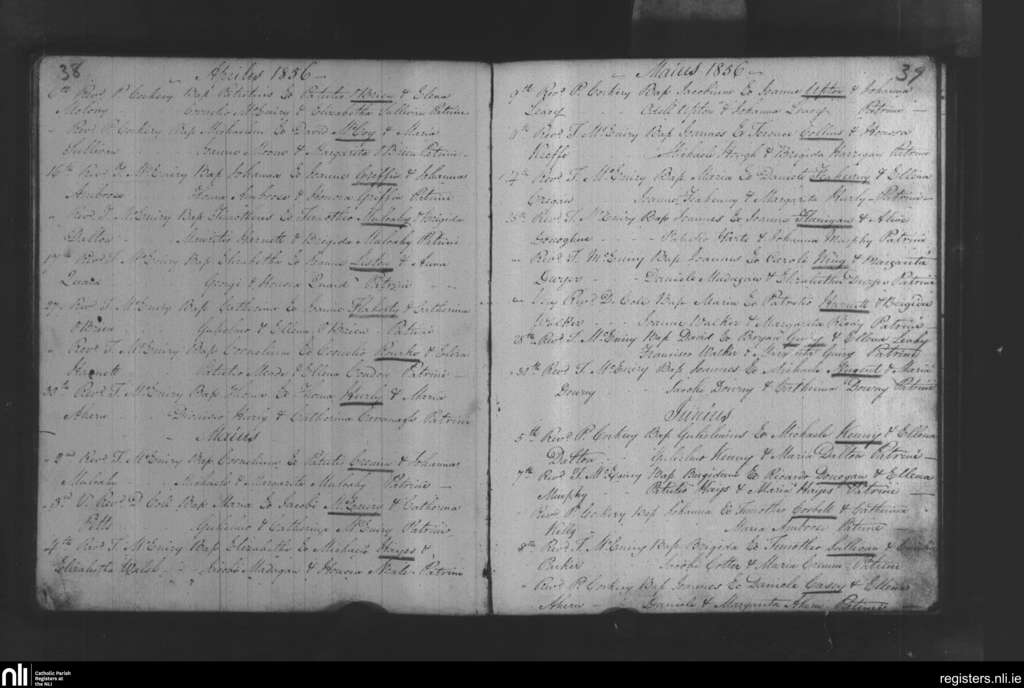 38
Apriles 1856
6th Revd P. Corkery Bap Patritius Ex Patritio O'Brien & Elena
Molony Cornelio McEniry & Elizabetha Sullivan Patrini
" Revd P. Corkery Bap Michaelem Ex David McCoy & Maria
Sullivan & Margarita O'Brien Patrini
16th Revd T. McEniry Bap Johanna Ex Joanne Griffin & Johanna
Ambrose Thoma Ambrose & Honora Griffin Patrini
" Revd T. McEniry Bap Timotheus Ex Timotheo Mulcahy & Brigida
Dalton Harnett & Brigida Mulcahy Patrini
17th Revd T. McEniry Bap Elizabetha Ex Joanne Liston & Anna
Georgi & Honora Patrini
27 Revd T. McEniry Bap Catherina Ex Joanne Flaherty & Catherina
O'Brien Gulielmo & Ellena O'Brien Patrini
" Revd T. McEniry Bap Cornelium Ex Cornelio Rourke & Eliza
Harnett Patritio Meade & Ellena Condon Patrini
30th Revd T. McEniry Bap Thomas Ex Thoma Hurly & Maria
Ahern & Catherina Cavanagh Patrini
Maius
2nd Revd T. McEniry Bap Cornelium Ex Patritio & Johanna
Mulcahy Michaele & Margarita Mulcahy Patrini
3rd V. Revd D. Cole Bap Maria Ex Jacobi & Catherina
Gulielmo & Catherina McEniry Patrini
4th Revd T. McEniry Bap Elizabetha Ex Michaele Hayes &
Elizabetha Walsh Jacobo Madigan & Honora Neale Patrini
Maius 1856
39
9th Revd P. Corkery Bap Jacobum Ex Joanne Upton & Johanna
Leary Upton & Johanna Leary Patrini
9th Revd T. McEniry Bap Joannes Ex Collins & Honora
Keeffe Michaele Hough & Brigida Harrigan Patrini
Revd T. McEniry Bap Maria Ex Daniele Flaherty & Ellena
Cregan Joanne Flaherty & Margarita Hurly Patrini
Revd T. McEniry Bap Joannes Ex Joanne Flanigan & Alice
Donoghue Patritio & Johanna Murphy Patrini
" Revd T. McEniry Bap Joannes Ex Carolo King & Margarita
Dwyer Daniele Madigan & Elizabetha Dwyer Patrini
" Very Revd D. Cole Bap Maria Ex Patritio Harnett & Brigida
Walker Joanne Walker & Margarita Patrini
28th Revd T. McEniry Bap David Ex Bryan & Ellena Leahy
Francisco Walker & Patrini
30th Revd T. McEniry Bap Joannes Ex Michaele Nugent & Maria
Downy Jacobo Downy & Catherina Downy Patrini
Junius
5th Revd P. Corkery Bap Gulielmus Ex Michaele Kenny & Ellena
Dalton Gulielmo Kenny & Maria Dalton Patrini
7th Revd T. McEniry Bap Brigidam Ex Ricardo Donegan & Ellena
Murphy Patritio Hays & Maria Hayes Patrini
" Revd P. Corkery Bap Johanna Ex Timotheo Corbett & Catherina
Kelly Maria Ambrose Patrini
8th Revd T. McEniry Bap Brigida Ex Timotheo Sullivan &
Parker Jacobo Cotter & Maria Patrini
" Revd P. Corkery Bap Joannes Ex Daniele Casey & Ellena
Ahern Daniele & Margarita Ahern Patrini
nli
Catholic Parish
Registers at
the NLI
registers.nli.ie